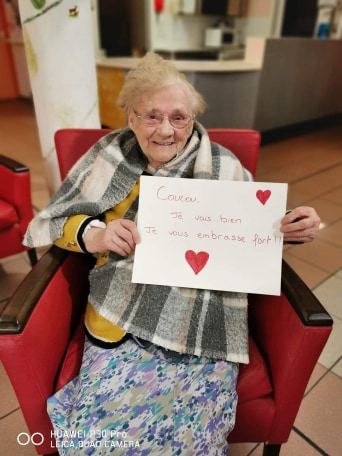 Coucou,
Je vais bien
Je vous embrasse fort!!
HUAWEI P30 Pro
LEICA QUAD CAMERA